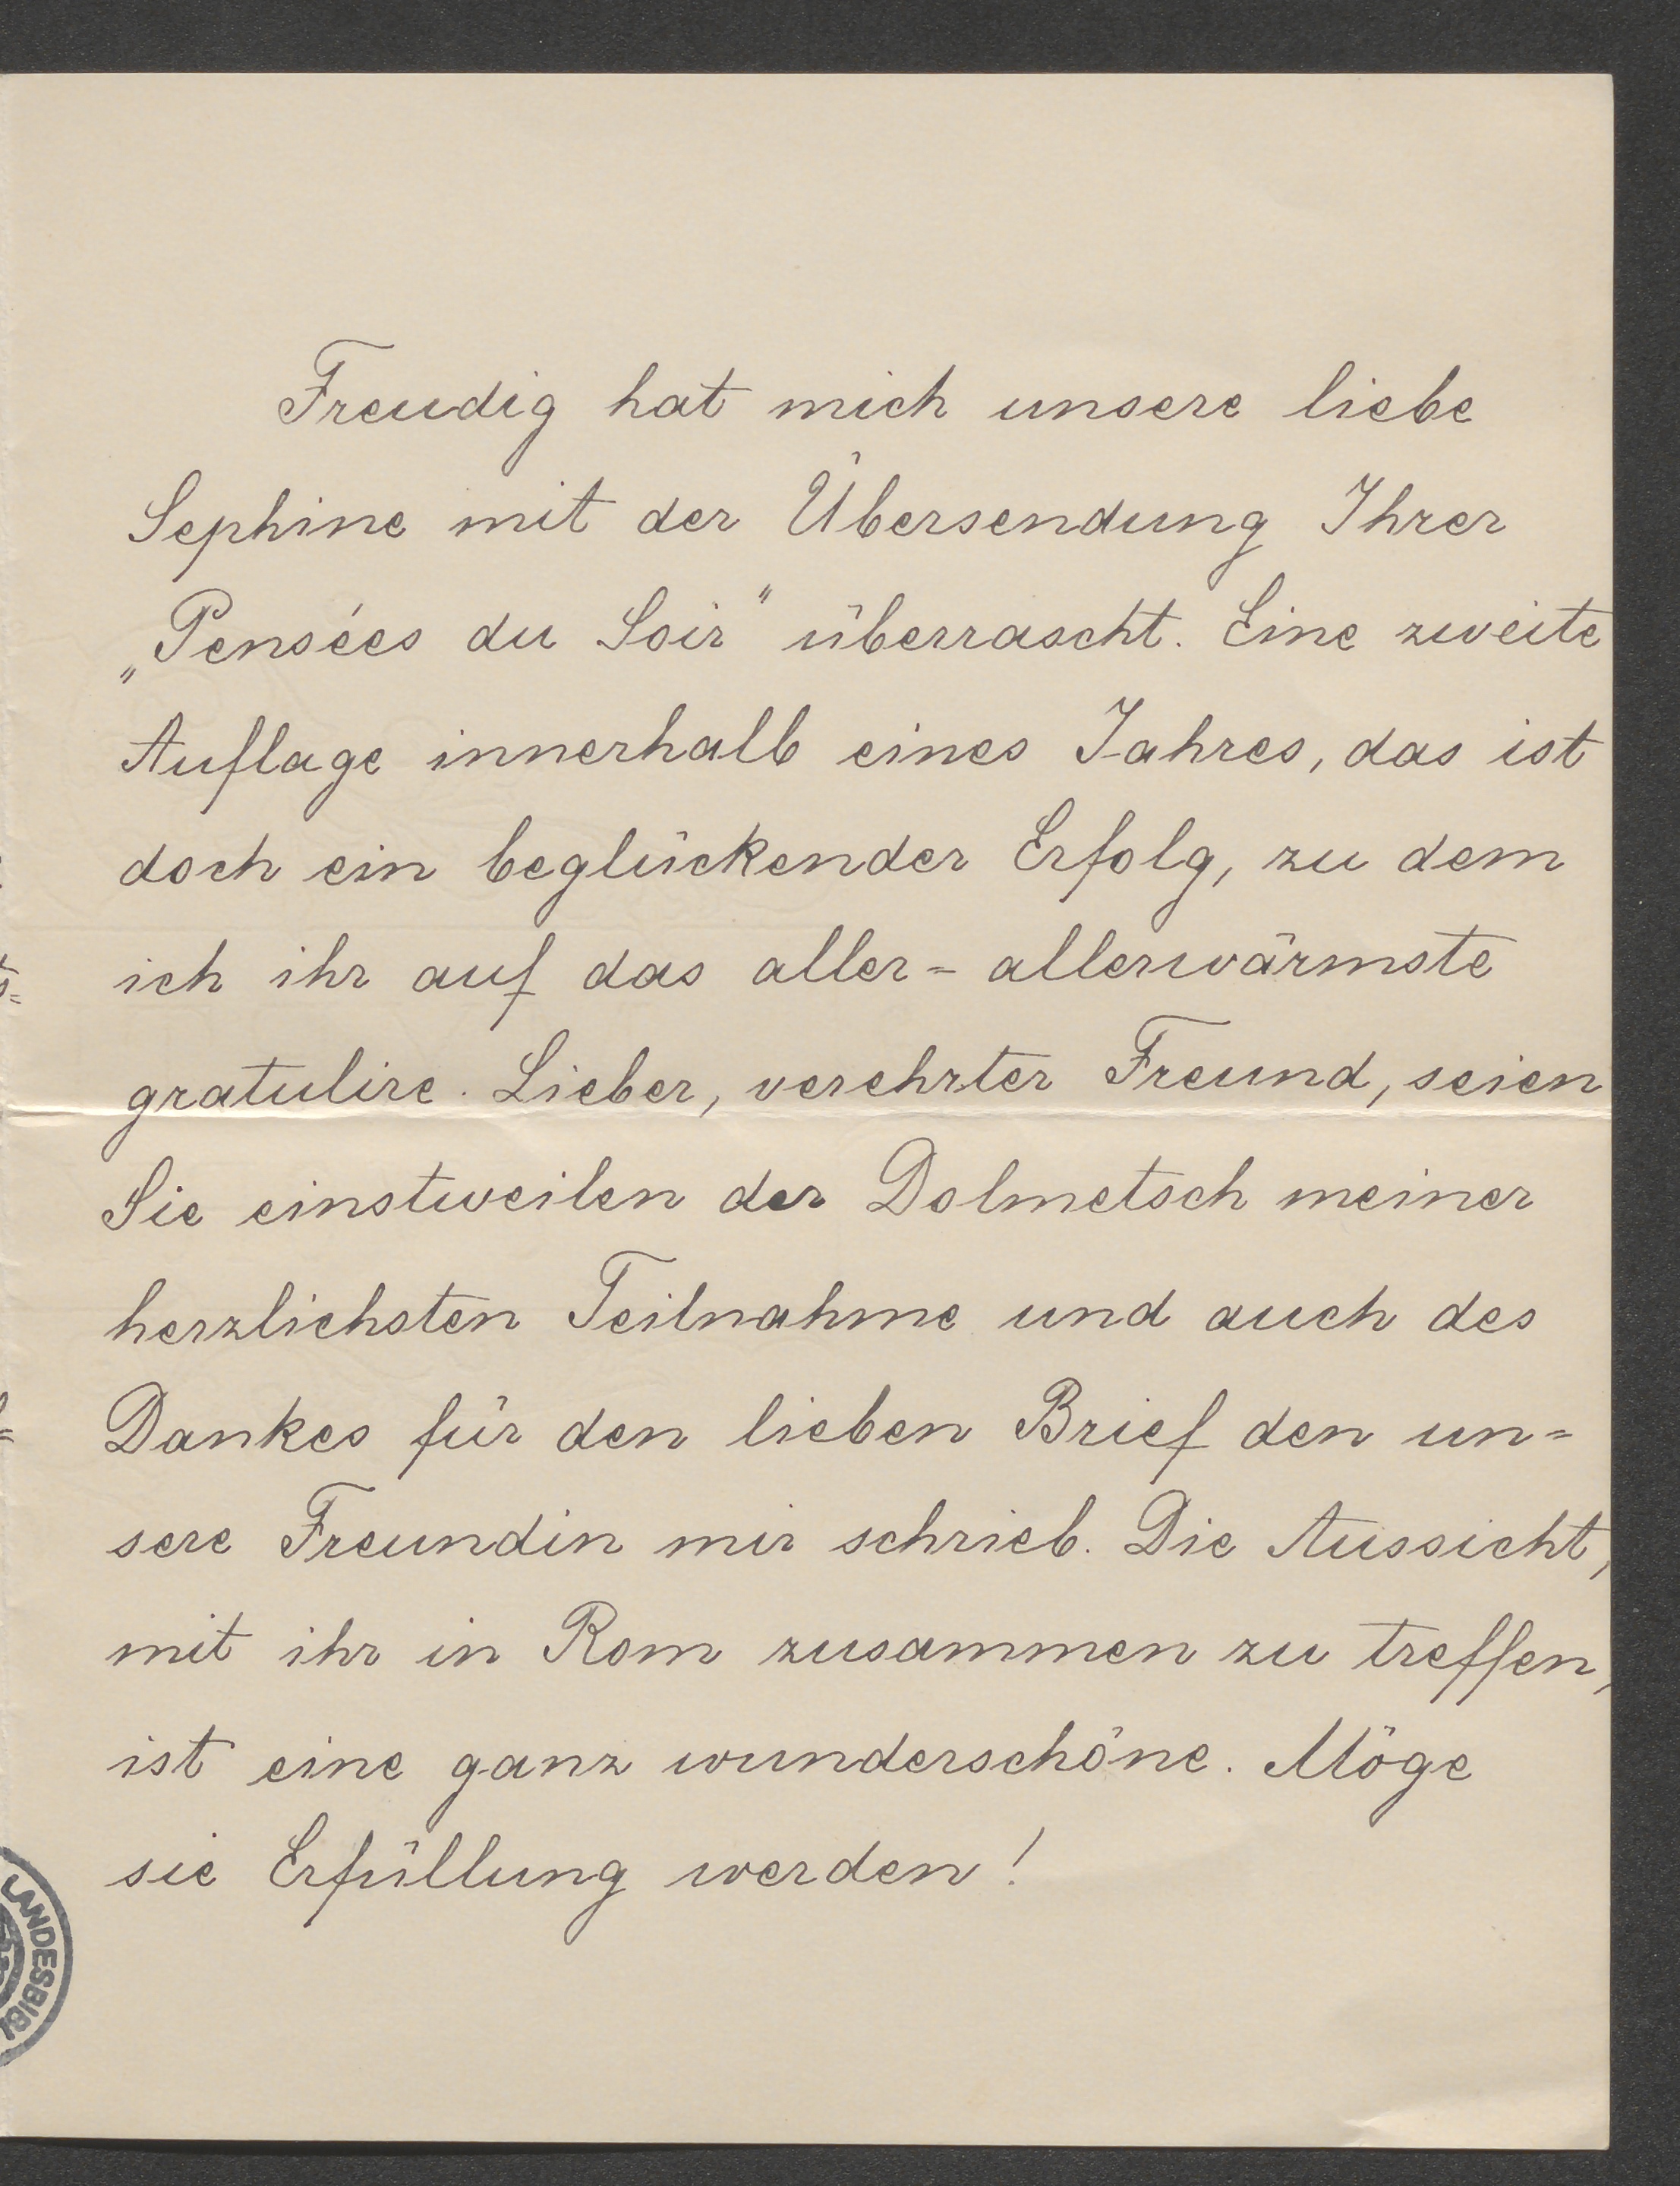 Freudig hat mich unsere liebe
Sephine mit der Übersendung Ihrer
„Pensées du Soir" überrascht. Eine zweite
Auflage innerhalb eines Jahres, das ist
doch ein beglückender Erfolg, zu dem
ich ihr auf das aller- allerwärmste
gratulire. Lieber, verehrter Freund, seien
Sie einstweilen der Dolmetsch meiner
herzlichsten Teilnahme und auch des
Dankes für den lieben Brief den un=
sere Freundin mir schrieb. Die Aussicht,
mit ihr in Rom zusammen zu treffen,
ist eine ganz wunderschöne. Möge
sie Erfüllung werden!
LANDESBIBL